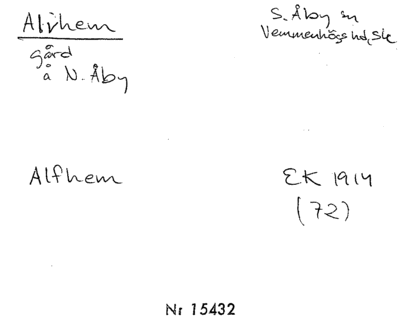 Alvhem
gård
å N. Åby
S. Åby sn
Vemmenhögs hd, Sk
Alfhem
EK 1914
(72)
Nr 15432